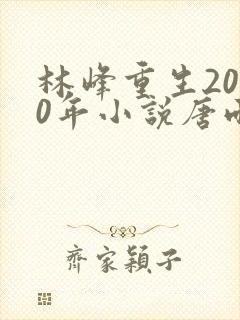 林峰重生20
0年小說唐
齊家穎子